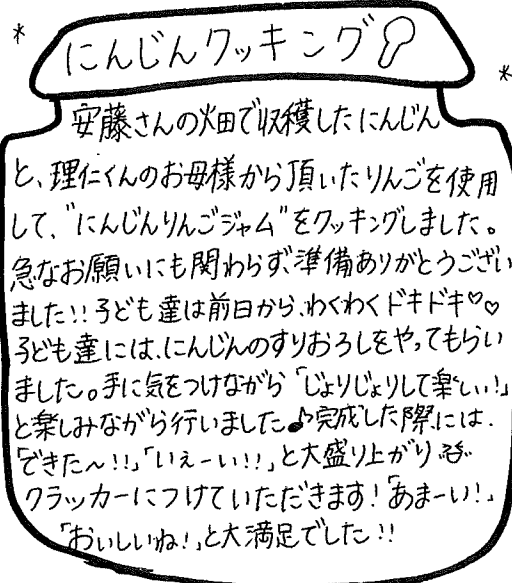 にんじんクッキング
安藤さんの畑で収穫したにんじん
と、理仁くんのお母様から頂いたりんごを使用
して、"にんじんりんごジャム"をクッキングしました。
急なお願いにも関わらず、準備ありがとうござい
ました!!子ども達は前日から、わくわくドキドキ♡♡
子ども達には、にんじんのすりおろしをやってもらい
ました。手に気をつけながら「じょりじょりして楽しい!」
と楽しみながら行いました♪完成した際には、
「できた〜!!」「いぇーい!!」と大盛り上がり
クラッカーにつけていただきます!「あまーい!」
「おいしいね!」と大満足でした!!